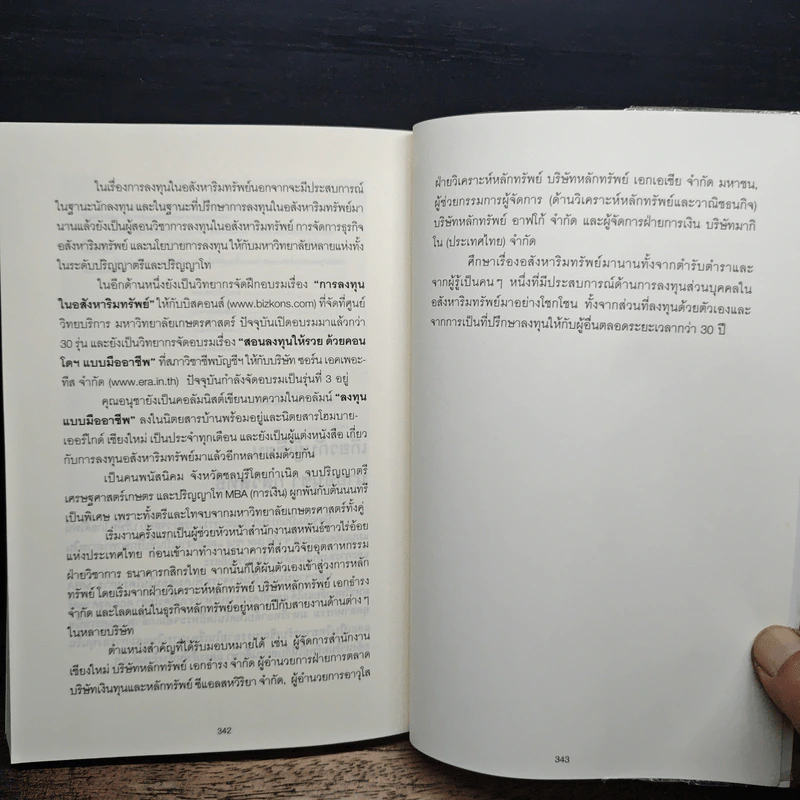 ในเรื่องการลงทุนในอสังหาริมทรัพย์นอกจากจะมีประสบการณ์
ในฐานะนักลงทุน และในฐานะที่ปรึกษาการลงทุนในอสังหาริมทรัพย์มา
นานแล้วยังเป็นผู้สอนวิชาการลงทุนในอสังหาริมทรัพย์ การจัดการธุรกิจ
อสังหาริมทรัพย์ และนโยบายการลงทุน ให้กับมหาวิทยาลัยหลายแห่งทั้ง
ในระดับปริญญาตรีและปริญญาโท
ในอีกด้านหนึ่งยังเป็นวิทยากรจัดฝึกอบรมเรื่อง “การลงทุน
ในอสังหาริมทรัพย์” ให้กับบิสคอนส์ (www.bizkons.com) ที่จัดที่ศูนย์
วิทยบริการ มหาวิทยาลัยเกษตรศาสตร์ ปัจจุบันเปิดอบรมมาแล้วกว่า
30 รุ่น และยังเป็นวิทยากรจัดอบรมเรื่อง “สอนลงทุนให้รวย ด้วยคอน
โดฯ แบบมืออาชีพ” ที่สภาวิชาชีพบัญชีฯ ให้กับบริษัท ซอร์น เอคเพอะ-
ทีส จำกัด (www.era.in.th) ปัจจุบันกำลังจัดอบรมเป็นรุ่นที่ 3 อยู่
คุณอนุชายังเป็นคอลัมนิสต์เขียนบทความในคอลัมน์ “ลงทุน
แบบมืออาชีพ” ลงในนิตยสารบ้านพร้อมอยู่และนิตยสารโฮมบาย-
เออร์ไกด์ เชียงใหม่ เป็นประจำทุกเดือน และยังเป็นผู้แต่งหนังสือ เกี่ยว
กับการลงทุนอสังหาริมทรัพย์มาแล้วอีกหลายเล่มด้วยกัน
เป็นคนพนัสนิคม จังหวัดชลบุรีโดยกำเนิด จบปริญญาตรี
เศรษฐศาสตร์เกษตร และปริญญาโท MBA (การเงิน) ผูกพันกับต้นนนทรี
เป็นพิเศษ เพราะทั้งตรีและโทจบจากมหาวิทยาลัยเกษตรศาสตร์ทั้งคู่
เริ่มงานครั้งแรกเป็นผู้ช่วยหัวหน้าสำนักงานสหพันธ์ชาวไร่อ้อย
แห่งประเทศไทย ก่อนเข้ามาทำงานธนาคารที่ส่วนวิจัยอุตสาหกรรม
ฝ่ายวิชาการ ธนาคารกสิกรไทย จากนั้นก็ได้ผันตัวเองเข้าสู่วงการหลัก
ทรัพย์ โดยเริ่มจากฝ่ายวิเคราะห์หลักทรัพย์ บริษัทหลักทรัพย์ เอกธำรง
จำกัด และโลดแล่นในธุรกิจหลักทรัพย์อยู่หลายปีกับสายงานด้านต่างๆ
ในหลายบริษัท
ตำแหน่งสำคัญที่ได้รับมอบหมายได้ เช่น ผู้จัดการสำนักงาน
เชียงใหม่ บริษัทหลักทรัพย์ เอกธำรง จำกัด ผู้อำนวยการฝ่ายการตลาด
บริษัทเงินทุนและหลักทรัพย์ ซีแอลสหวิริยา จำกัด, ผู้อำนวยการอาวุโส
342
ฝ่ายวิเคราะห์หลักทรัพย์ บริษัทหลักทรัพย์ เอกเอเซีย จำกัด มหาชน,
ผู้ช่วยกรรมการผู้จัดการ (ด้านวิเคราะห์หลักทรัพย์และวาณิชธนกิจ)
บริษัทหลักทรัพย์ อาฟโก้ จำกัด และผู้จัดการฝ่ายการเงิน บริษัทมากิ
โน (ประเทศไทย) จำกัด
ศึกษาเรื่องอสังหาริมทรัพย์มานานทั้งจากตำรับตำราและ
จากผู้รู้เป็นคนๆ หนึ่งที่มีประสบการณ์ด้านการลงทุนส่วนบุคคลใน
อสังหาริมทรัพย์มาอย่างโชกโชน ทั้งจากส่วนที่ลงทุนด้วยตัวเองและ
จากการเป็นที่ปรึกษาลงทุนให้กับผู้อื่นตลอดระยะเวลากว่า 30 ปี
343